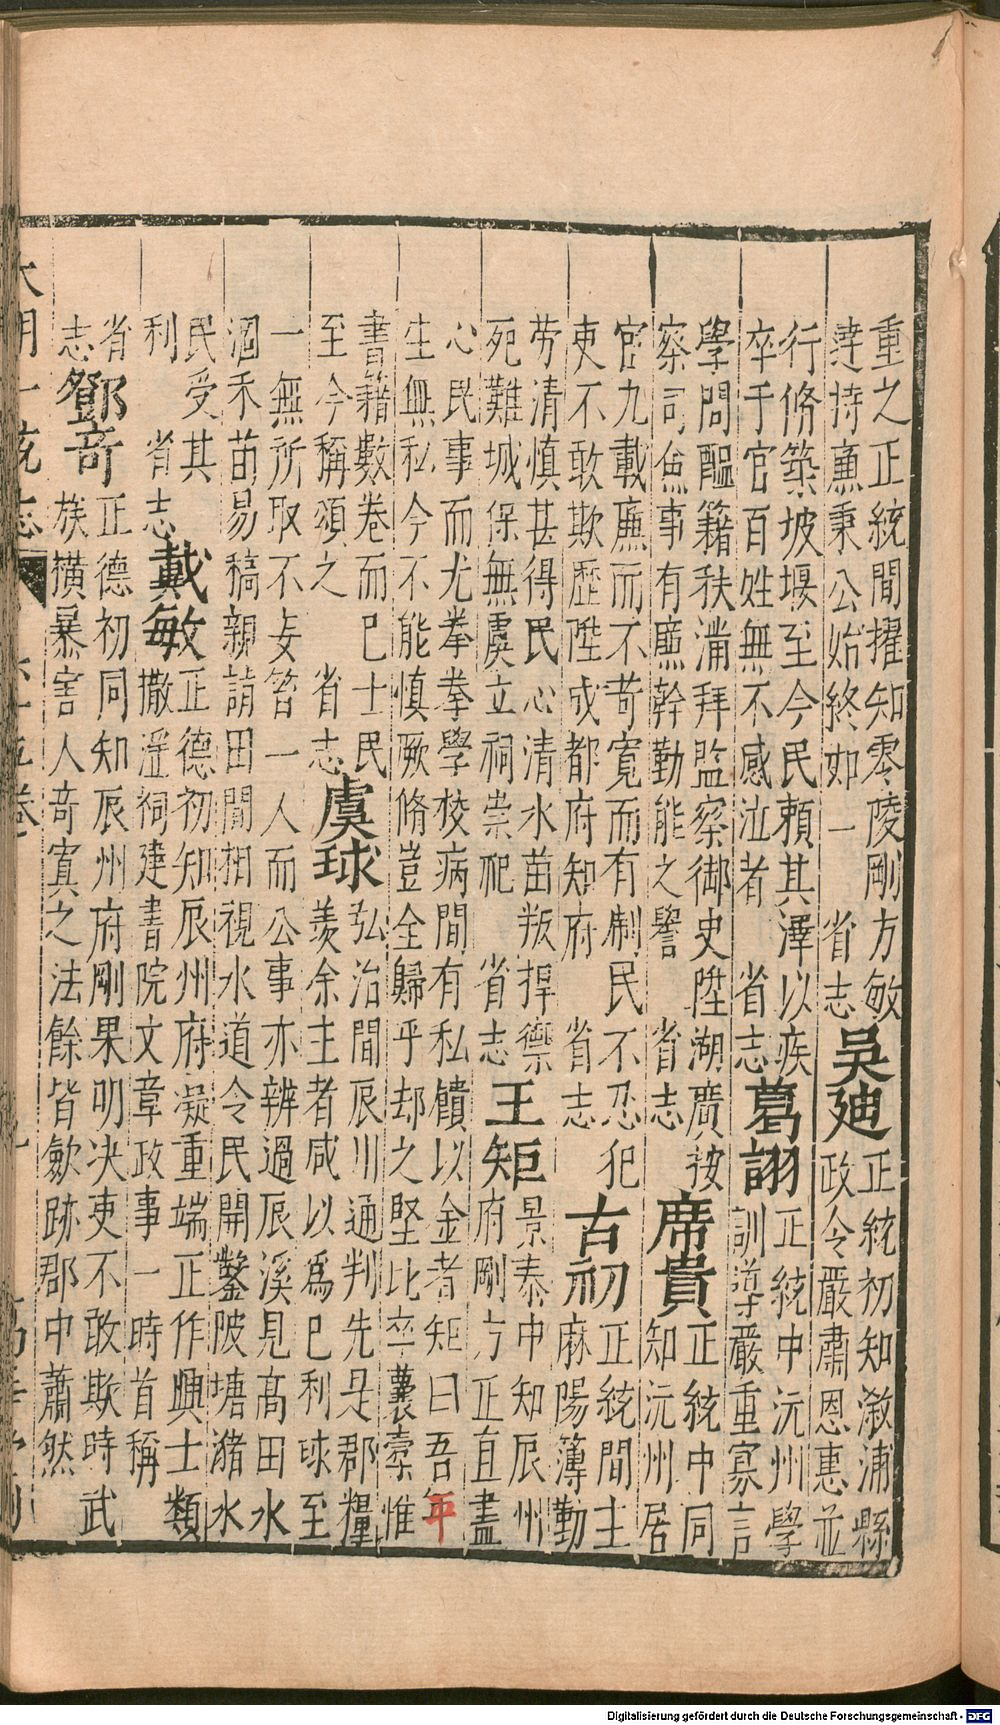 重之正統間擢知零陵剛方敏
達持廉秉公始終如一 省志
吳廸
正統初知漵浦縣
政令嚴肅恩惠並
行脩築坡堰至今民賴其澤以疾
卒于官百姓無不感泣者 省志
葛詡
正統中沅州學
訓導嚴重寡言
學問醞籍秩滿拜監察御史陞湖廣按
察司僉事有廉幹勤能之譽 省志
席貴
正統中同
知沅州居
官九載廉而不苛寬而有制民不忍犯
吏不敢欺歷陞成都府知府 省志
古初
正統間主
麻陽簿勤
勞清慎甚得民心清水苗叛捍禦
死難城保無虞立祠崇祀 省志
王矩
景泰中知辰州
府剛方正直盡
心民事而尤拳拳學校病間有私饋以金者矩曰吾平
生無私今不能慎厥脩豈全歸乎却之堅比卒囊橐惟
書籍數卷而已士民
至今稱頌之 省志
虞球
弘治間辰川通判先是郡糧
羨余主者咸以爲已利球至
一無所取不妄笞一人而公事亦辨過辰溪見高田水
涸禾苗易稿親詣田間相視水道令民開鑿陂塘瀦水
民受其
利 省志
戴敏
正德初知辰州府凝重端正作興士類
撒淫祠建書院文章政事一時首稱
省
志
鄧奇
正德初同知辰州府剛果明决吏不敢欺時武
族橫暴害人奇寘之法餘皆歛跡郡中蕭然
大明一統志
Digitalisierung gefördert durch die Deutsche Forschungsgemeinschaft - DFG